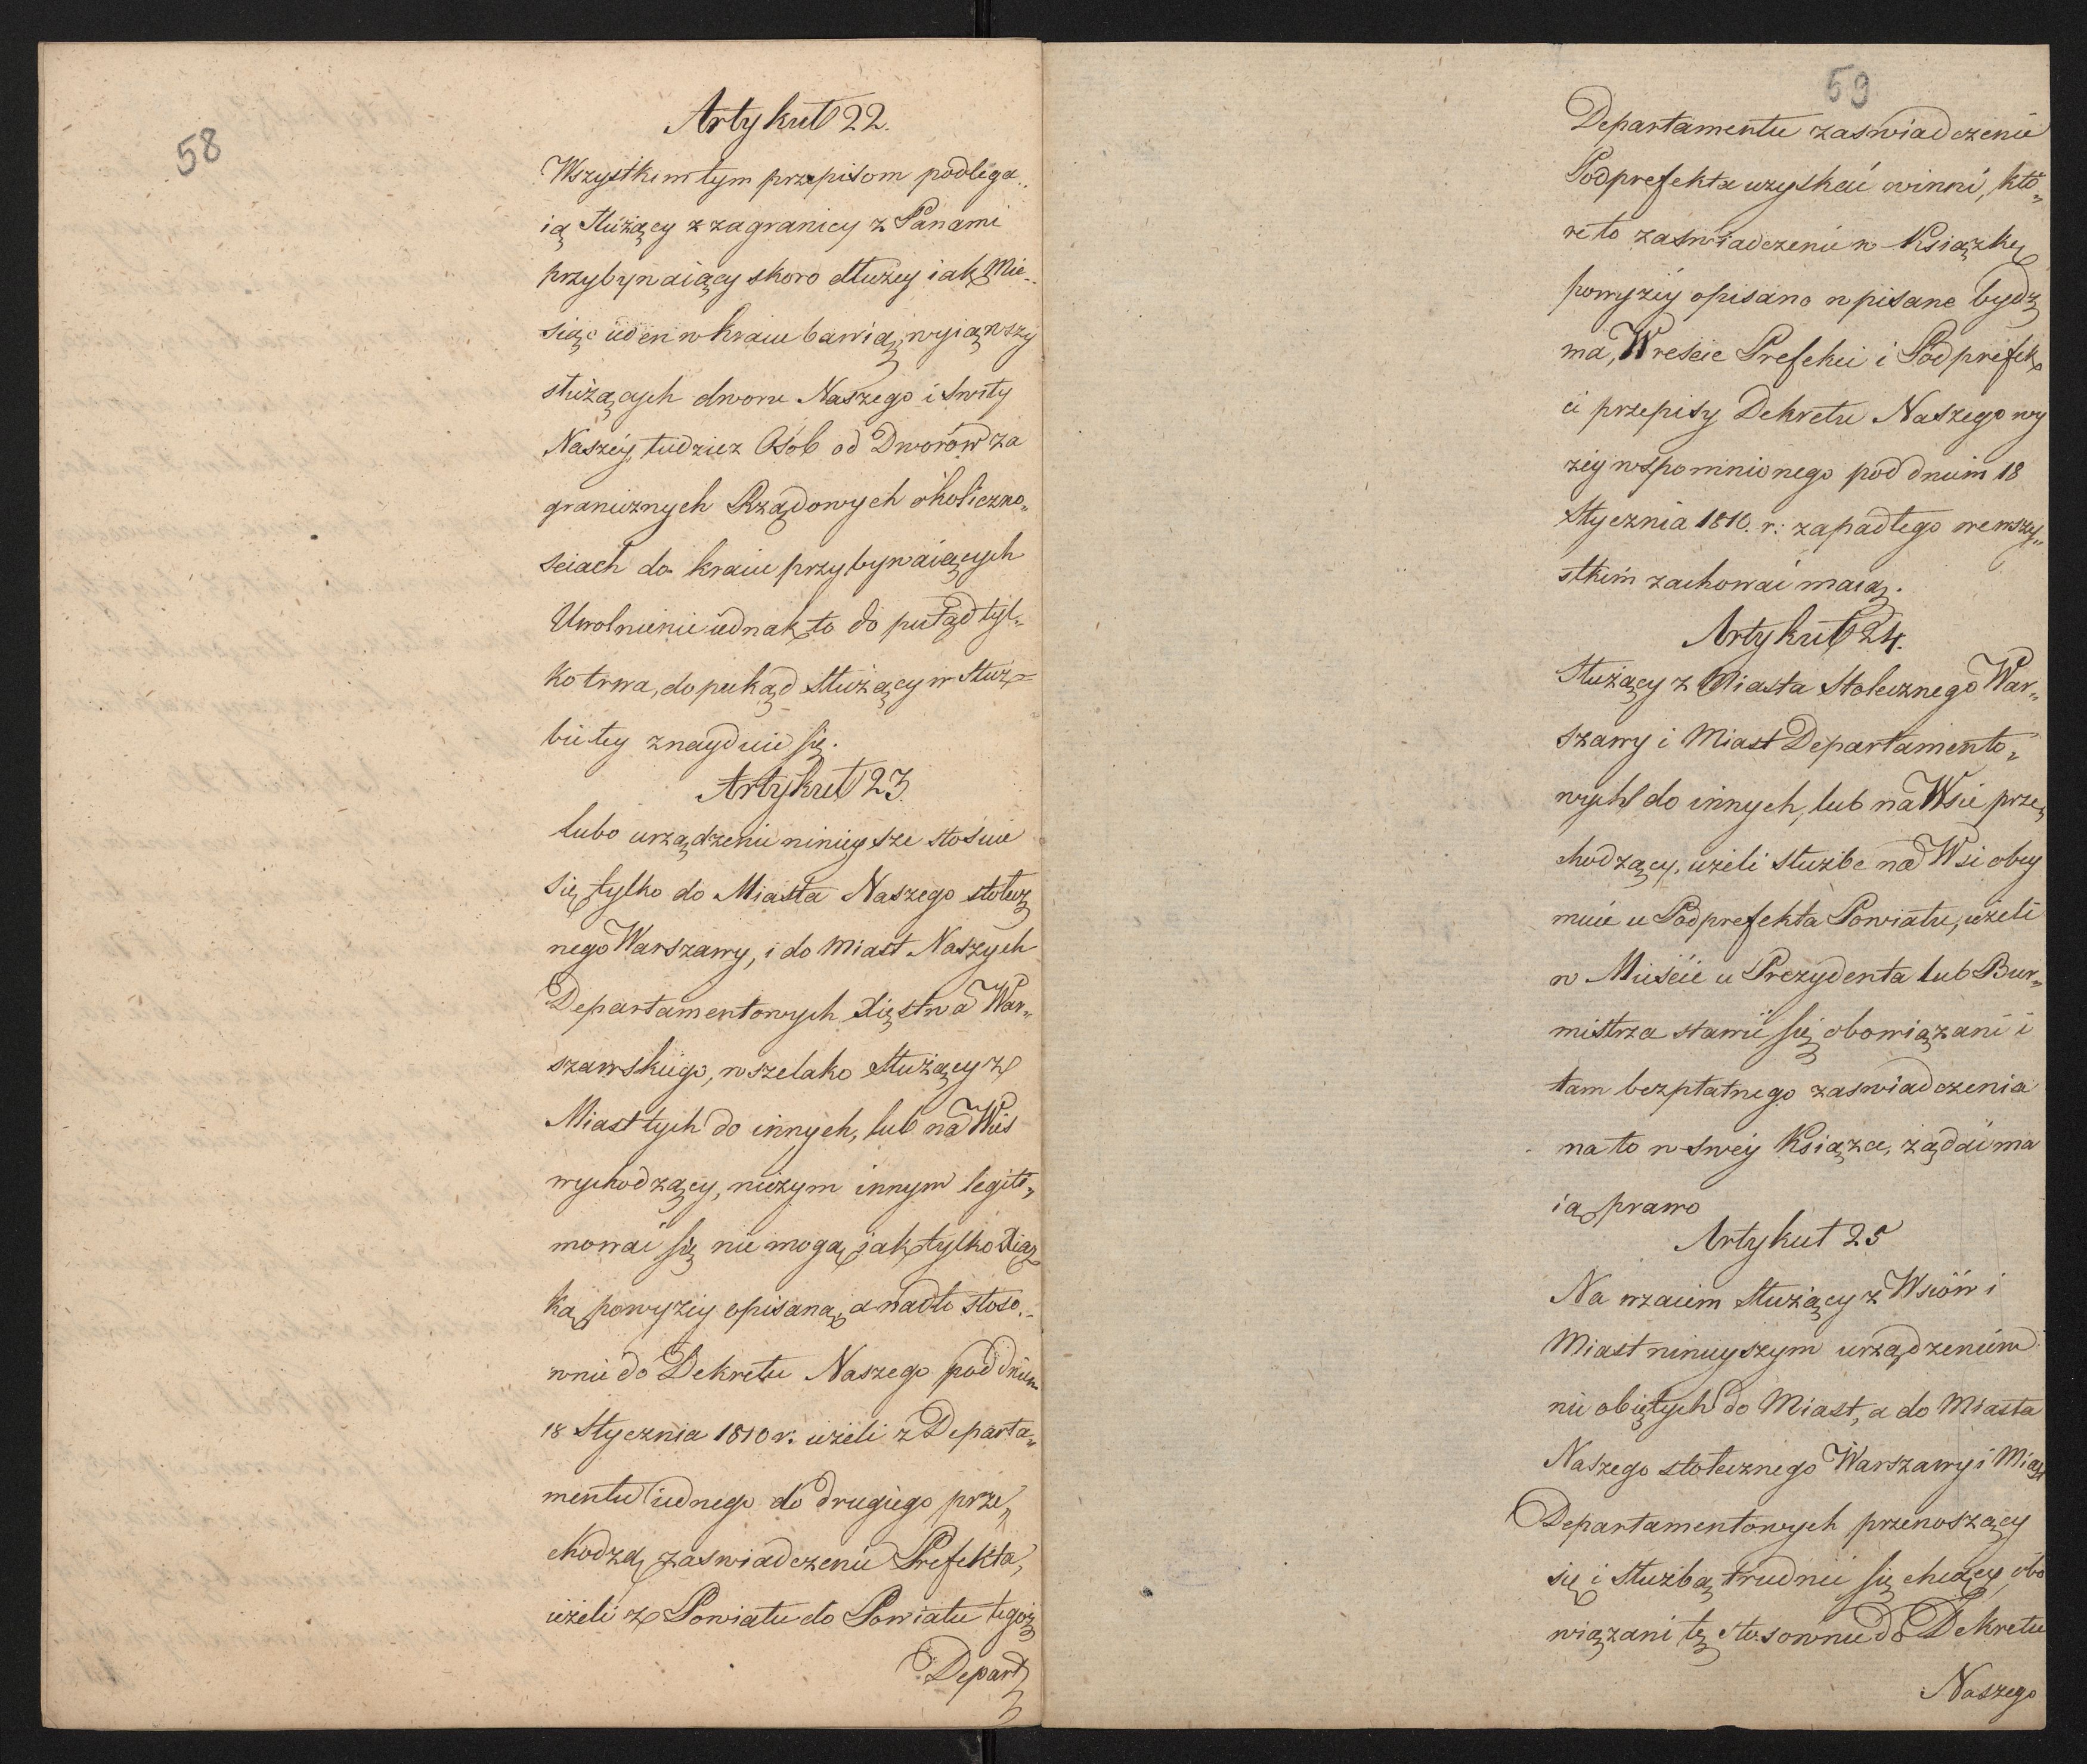 58
Artykuł 22.
Wszystkim tym przepisom podlega„
ią Służący z zagranicy z Panami
przybywaiący skoro dłużey iak Mie„
siąc ieden w kraiu bawią, wyiąwszy
służących dworu Naszego i Swity
Naszey, tudziez Osób od Dworów za
granicznych Rządowych okoliczno„
sciach do kraiu przybywaiących
Uwolnienie iednak to do putąd tyl„
ko trwa, do pukąd Służący w Służ„
bie tey znayduie się.
Artykuł 23.
lubo urządzenie ninieysze stosuie
się tylko do Miasta Naszego stołecz
nego Warszawy, i do Miast Naszych
Departamentowych Xięstwa War„
szawskiego, wszelako Służący z
Miast tych do innych, lub na Wieś
wychodzący, niczym innym legity„
mować się nie mogą, iak tylko Xiąż
ką powyżey opisaną, a nadto stoso„
wnie do Dekretu Naszego pod dniem
18 Stycznia 1810 r. ieżeli z Departa„
mentu iednego do drugiego prze„
chodzą zaswiadczenie Prefekta,
ieżeli z Powiatu do Powiatu tegoż
Depart
59
Departamentu zaswiadczenie
Podprefekta uzyskać winni, któ„
re to zaswiadczenie w Książkę
powyżey opisano wpisane bydź
ma, Wreście Prefekci i Podprefek„
ci przepisy Dekretu Naszego wy
żey wspomnionego pod dniem 18
Stycznia 1810. r: zapadłego we wszy„
stkim zachować maią.
Artykuł 24.
Służący z Miasta Stołecznego War„
szawy i Miast Departamento„
wych do innych, lub na Wsie prze„
chodzący, ieżeli służbę na Wsi obey
muie u Podprefekta Powiatu, ieżeli
w Mieście u Prezydenta lub Bur„
mistrza stawić się obowiązani i
tam bezpłatnego zaswiadczenia
na to w swey Książce, żądać ma
ią prawo
Artykuł 25
Na wzaiem Służący z Wsiów i
Miast ninieyszym urządzeniem
nie obiętych do Miast, a do Miasta
Naszego stołecznego Warszawy i Miast
Departamentowych przenoszący
się i Służbą trudnić się chcący, obo
wiązani są stosownie do Dekretu
Naszego